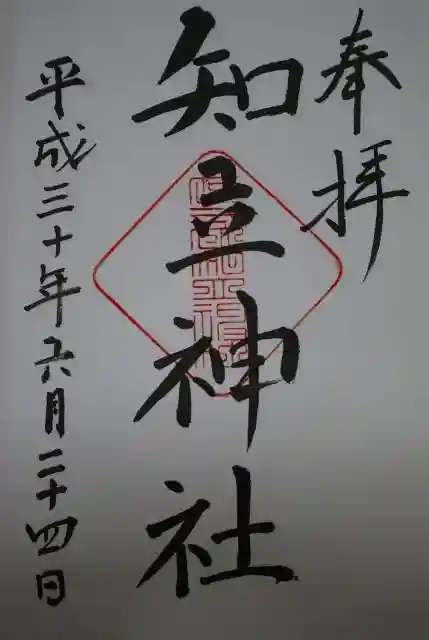 奉拝
知立神社
平成三十年六月二十四日